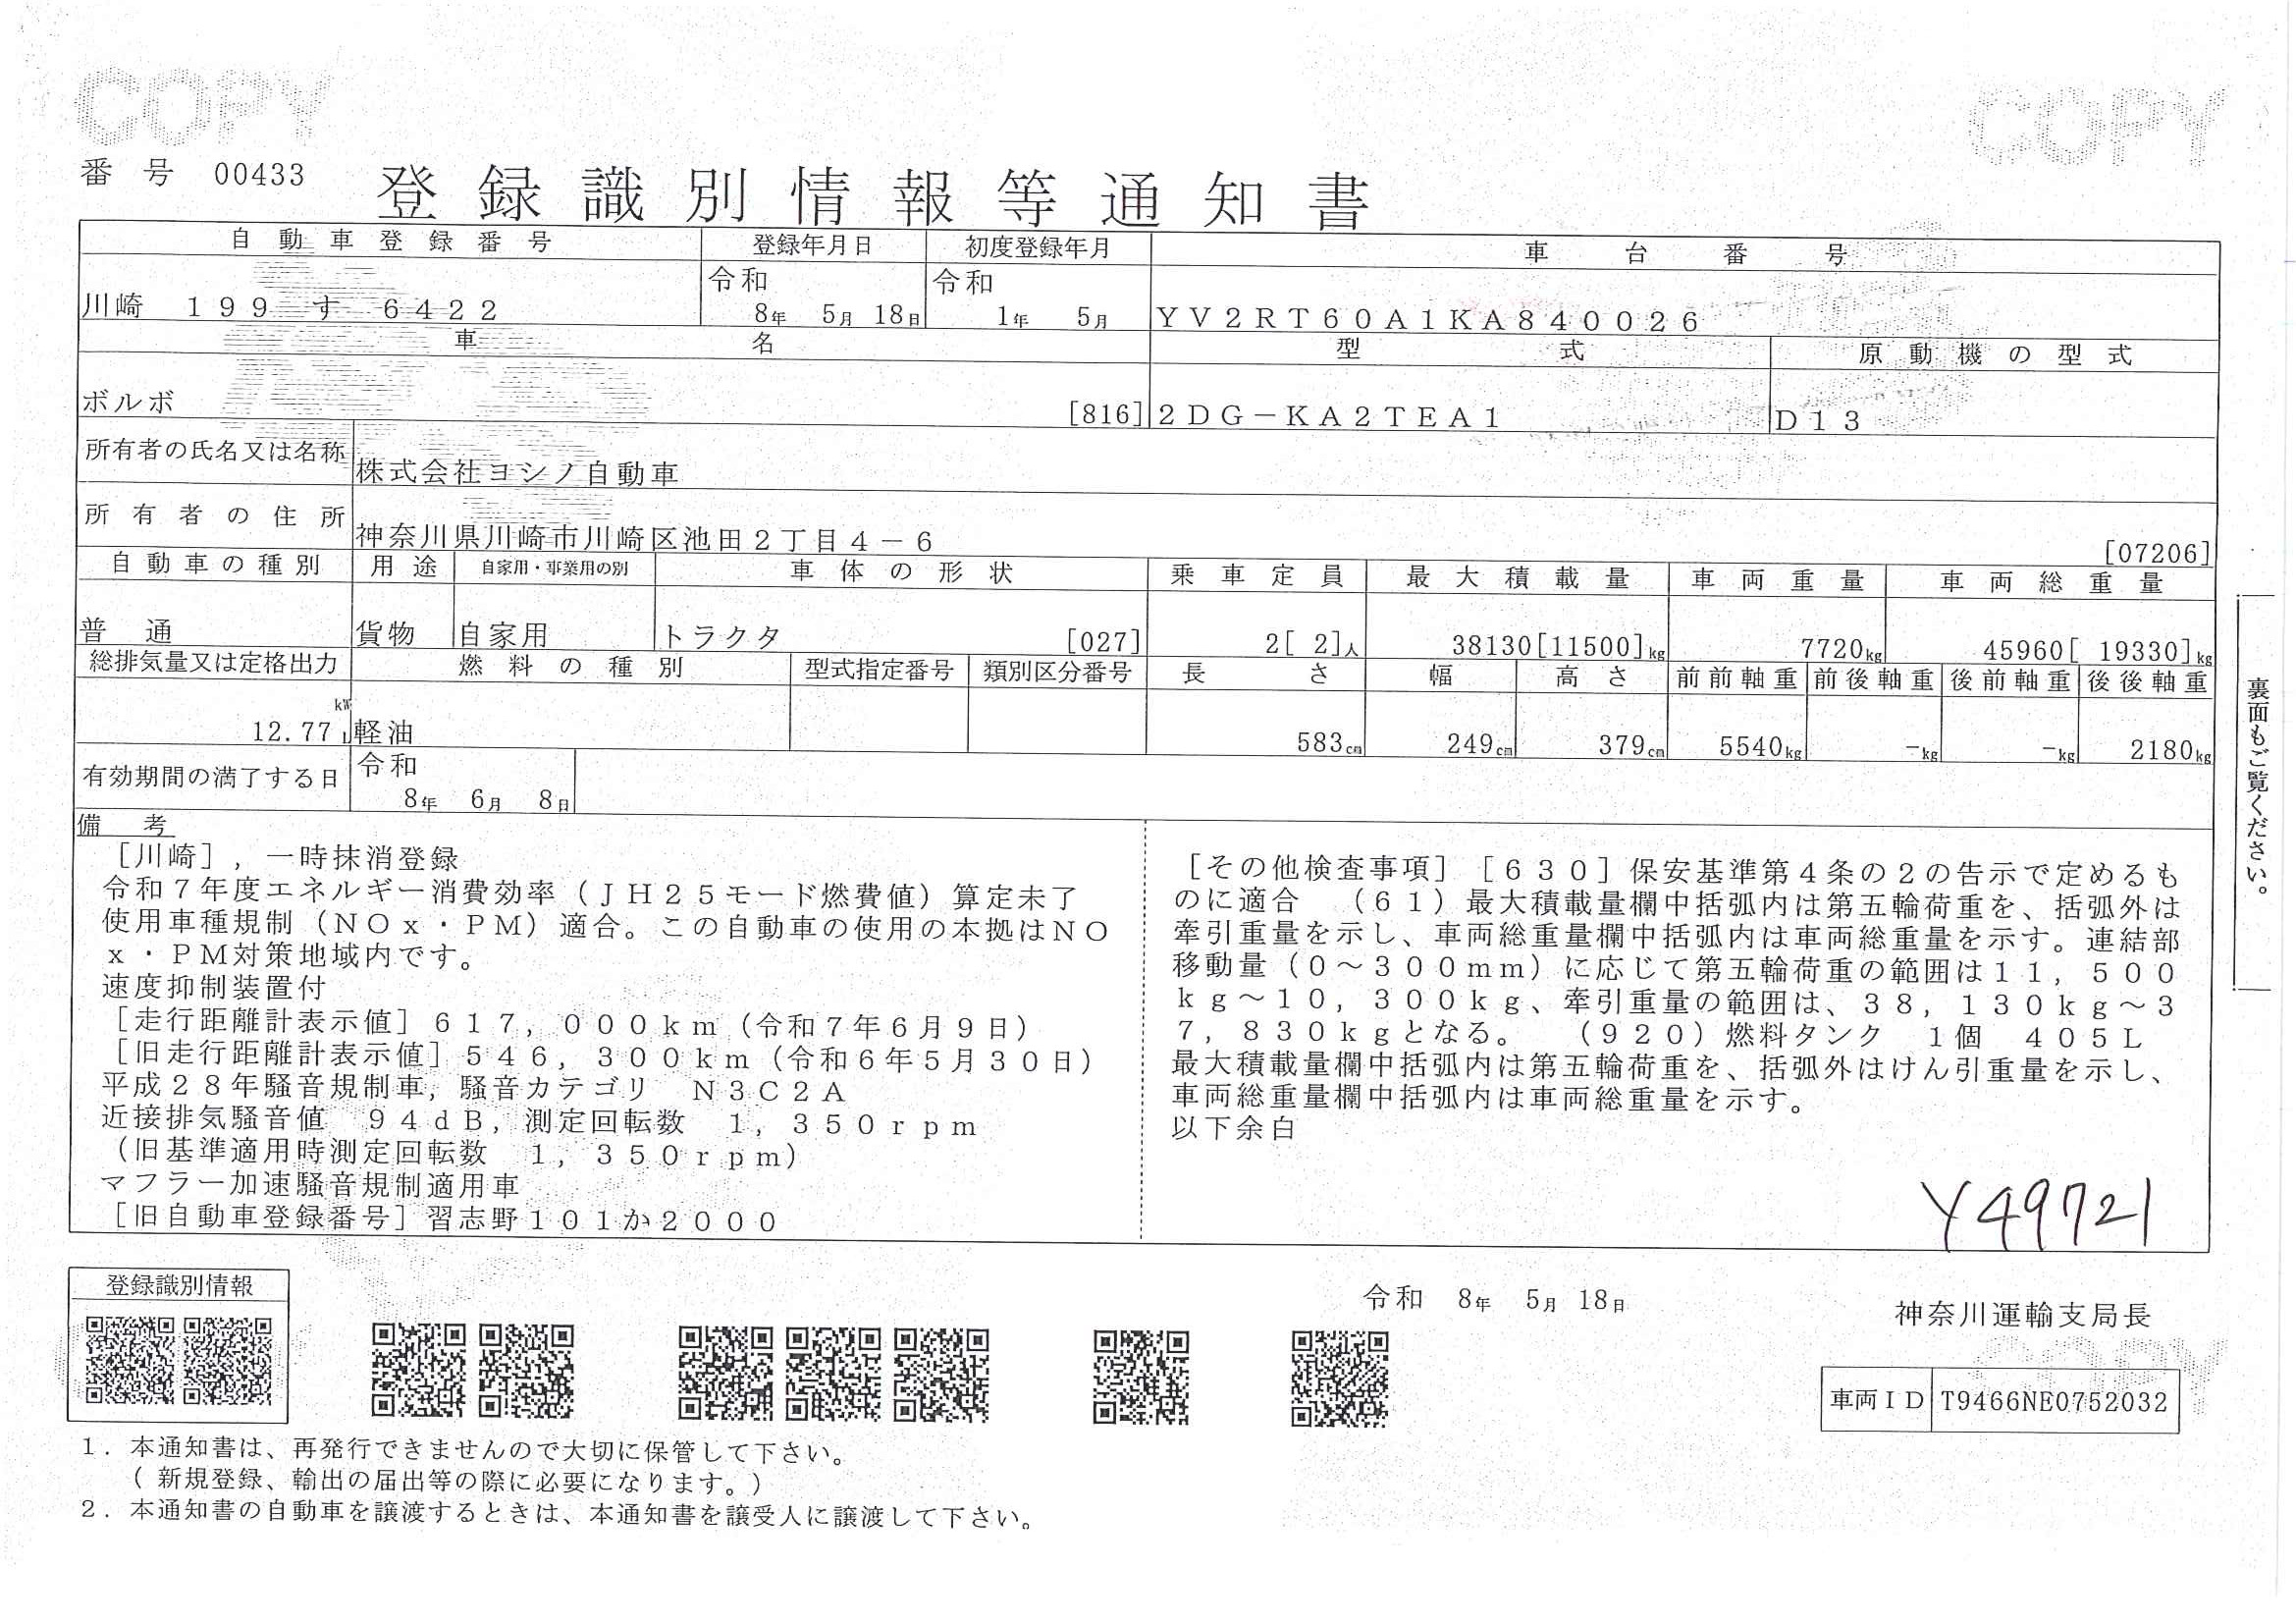 COPY COPY
番号 00433 登録識別情報等通知書
自動車登録番号 登録年月日 初度登録年月 車台番号
令和 令和
川崎 199 す 6422 8年 5月 18日 1年 5月 YV2RT60A1KA840026
車名 型式 原動機の型式
ボルボ [816] 2DG-KA2TEA1 D13
所有者の氏名又は名称 株式会社ヨシノ自動車
所有者の住所 神奈川県川崎市川崎区池田2丁目4-6 [07206]
自動車の種別 用途 自家用・事業用の別 車体の形状 乗車定員 最大積載量 車両重量 車両総重量
普通 貨物 自家用 トラクタ [027] 2[ 2]人 38130[11500]kg 7720kg 45960[ 19330]kg
総排気量又は定格出力 燃料の種別 型式指定番号 類別区分番号 長さ 幅 高さ 前前軸重 前後軸重 後前軸重 後後軸重
kW
12.77 L 軽油 583cm 249cm 379cm 5540kg -kg -kg 2180kg
有効期間の満了する日 令和
8年 6月 8日
備考
[川崎],一時抹消登録
令和7年度エネルギー消費効率(JH25モード燃費値)算定未了
使用車種規制(NOx・PM)適合。この自動車の使用の本拠はNO
x・PM対策地域内です。
速度抑制装置付
[走行距離計表示値]617,000km(令和7年6月9日)
[旧走行距離計表示値]546,300km(令和6年5月30日)
平成28年騒音規制車,騒音カテゴリ N3C2A
近接排気騒音値 94dB,測定回転数 1,350rpm
(旧基準適用時測定回転数 1,350rpm)
マフラー加速騒音規制適用車
[旧自動車登録番号]習志野101か2000
[その他検査事項][630]保安基準第4条の2の告示で定めるも
のに適合 (61)最大積載量欄中括弧内は第五輪荷重を、括弧外は
牽引重量を示し、車両総重量欄中括弧内は車両総重量を示す。連結部
移動量(0~300mm)に応じて第五輪荷重の範囲は11,500
kg~10,300kg、牽引重量の範囲は、38,130kg~3
7,830kgとなる。 (920)燃料タンク 1個 405L
最大積載量欄中括弧内は第五輪荷重を、括弧外はけん引重量を示し、
車両総重量欄中括弧内は車両総重量を示す。
以下余白
Y49721
裏面もご覧ください。
登録識別情報
令和 8年 5月 18日
神奈川運輸支局長
COPY
車両ID T9466NE0752032
1.本通知書は、再発行できませんので大切に保管して下さい。
(新規登録、輸出の届出等の際に必要になります。)
2.本通知書の自動車を譲渡するときは、本通知書を譲受人に譲渡して下さい。